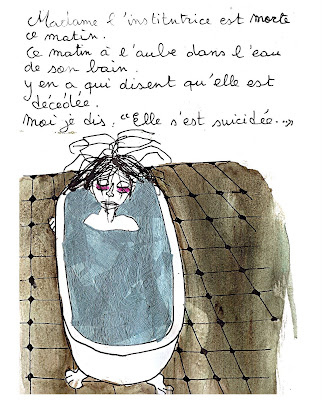 Madame l'institutrice est morte
ce matin.
Ce matin à l'aube dans l'eau
de son bain.
y en a qui disent qu'elle est
décédée.
Moi je dis, "Elle s'est suicidée..»